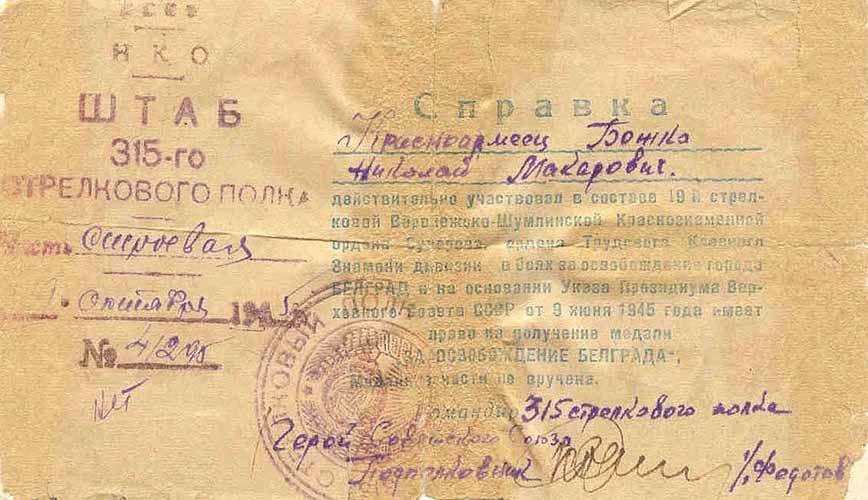 СССР
НКО
ШТАБ
315-го
СТРЕЛКОВОГО ПОЛКА
Часть Строевая
1. Октября 1945
№
нет
Справка
Красноармеец Божко
Николай Макарович.
действительно участвовал в составе 19й стрел-
ковой Воронежско-Шумлинской Краснознаменной
ордена Суворова, ордена Трудового Красного
Знамени дивизии в боях за освобождение города
БЕЛГРАД и на основании Указа Президиума Вер-
ховного Совета СССР от 9 июня 1945 года имеет
право на получение медали
"ЗА ОСВОБОЖДЕНИЕ БЕЛГРАДА",
Медаль в части не вручена.
Командир 315 стрелкового полка
Герой Советского Союза
Подполковник /Федотов